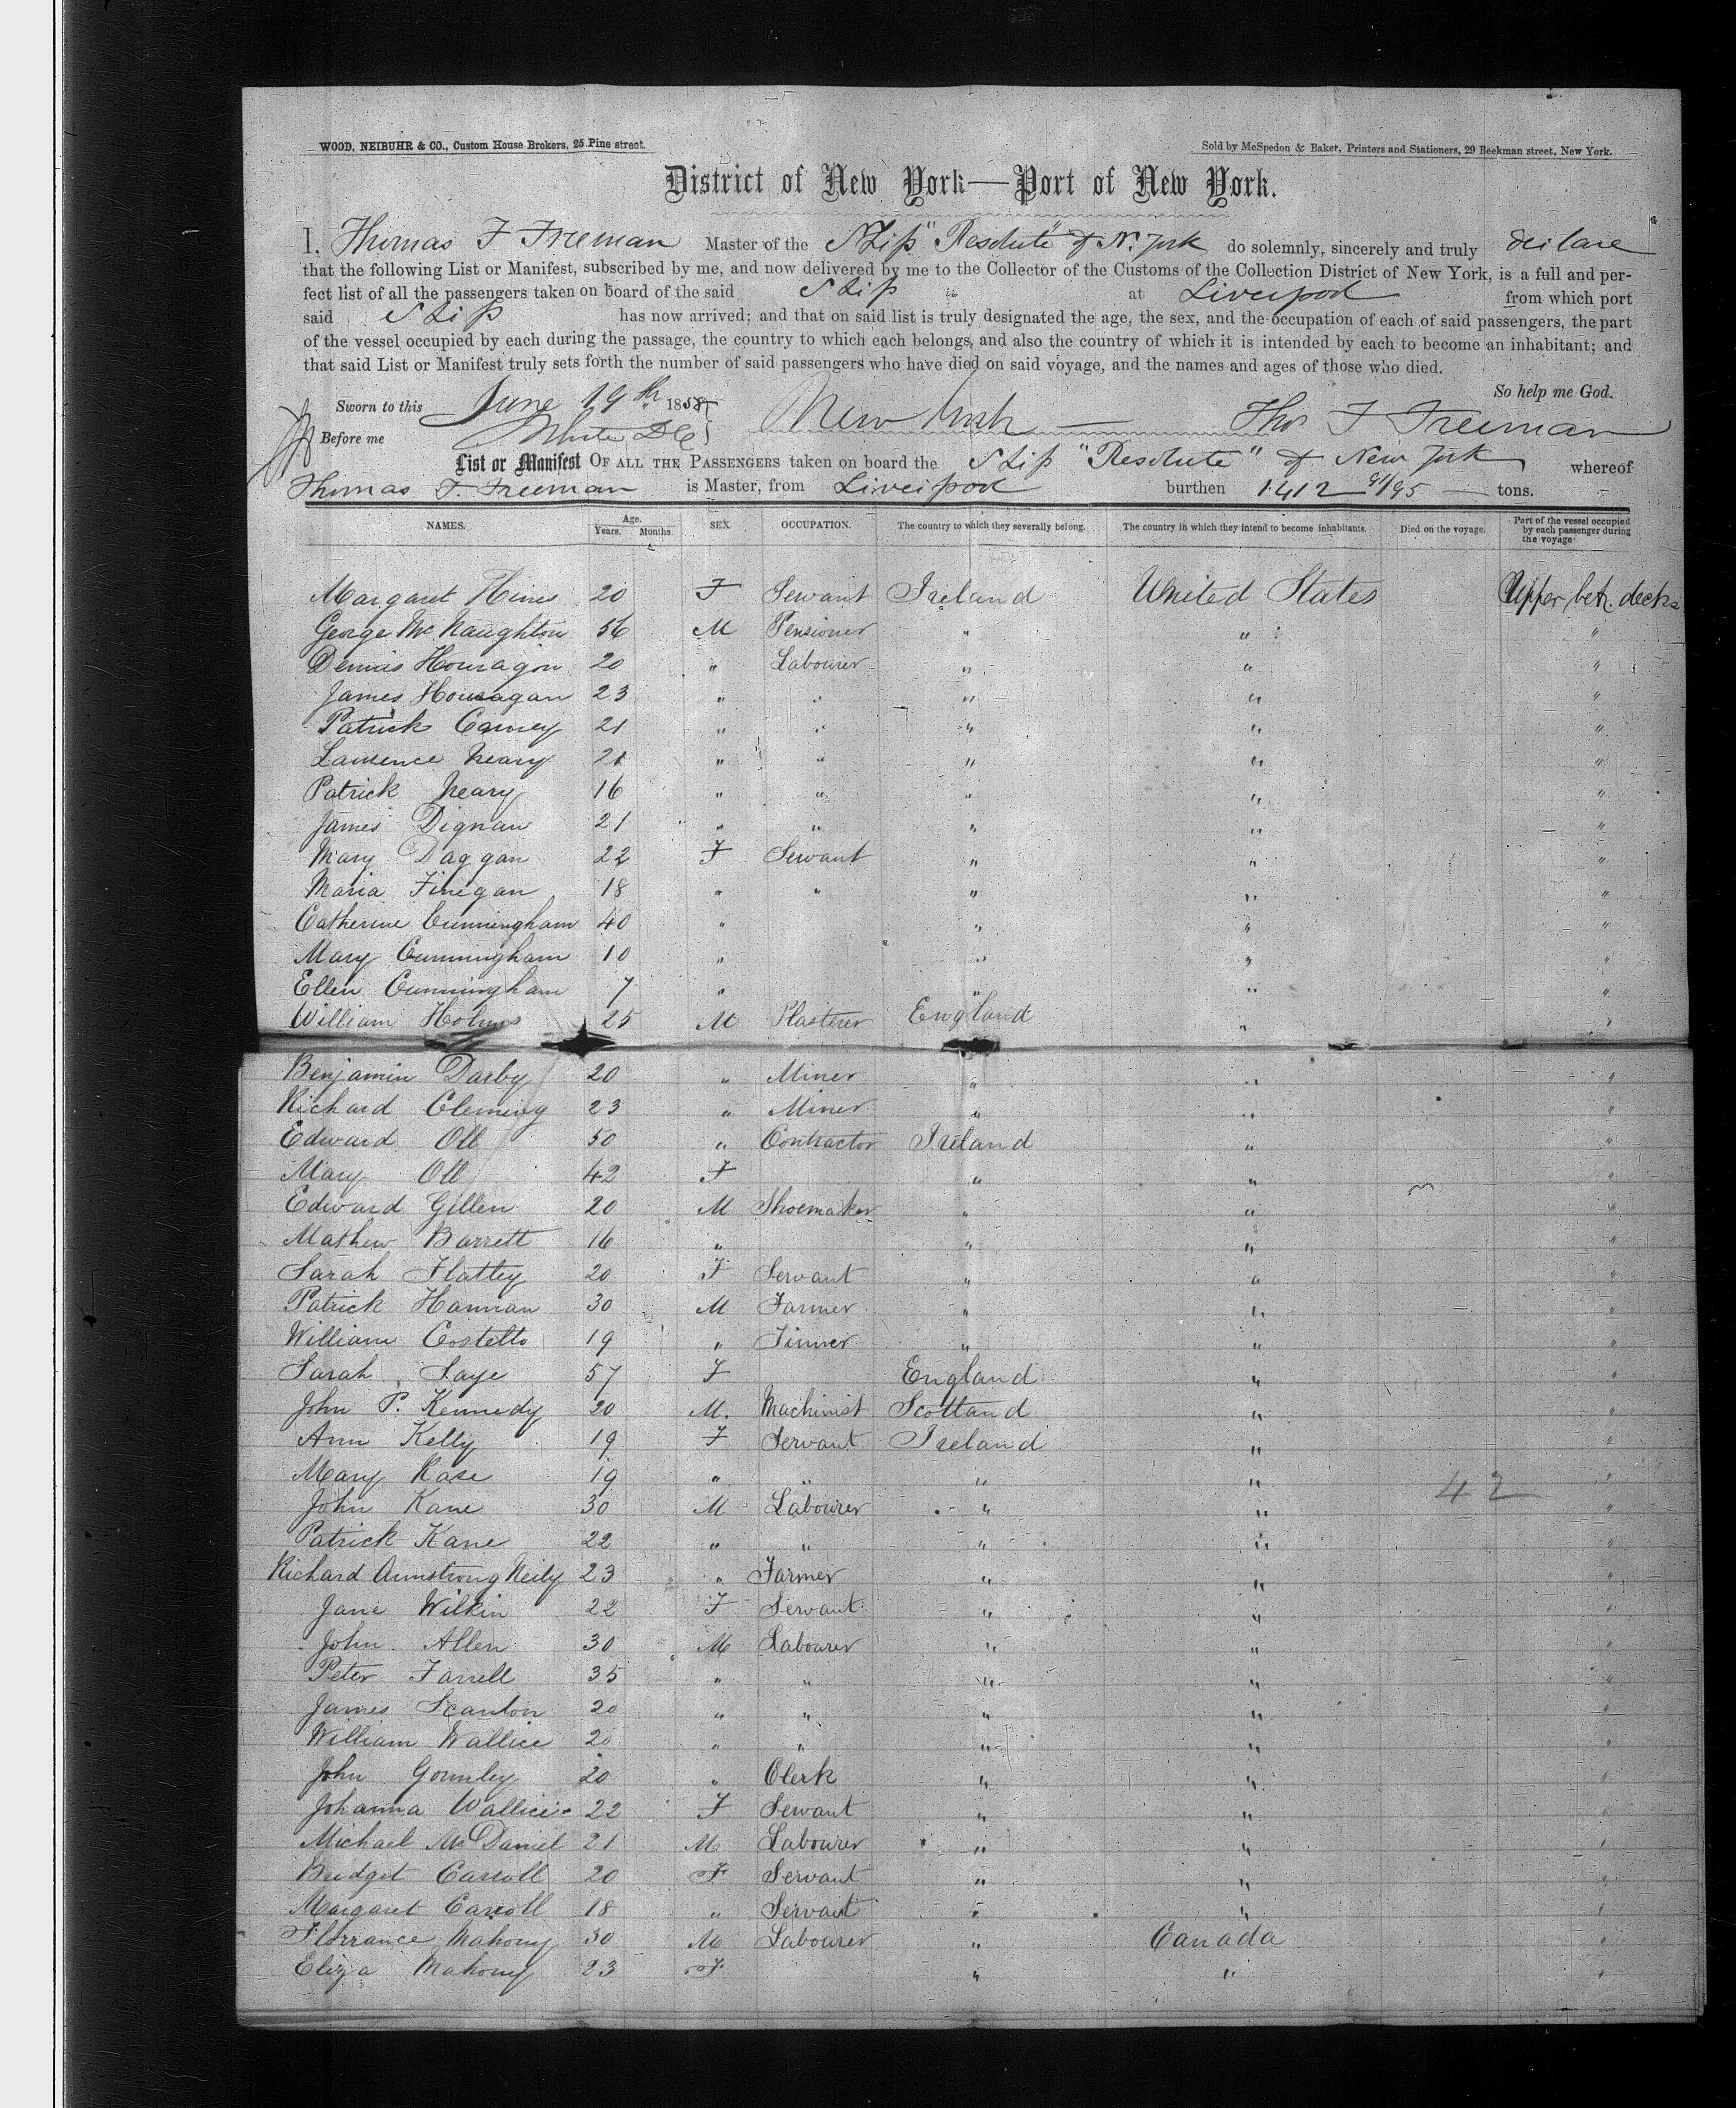 WOOD, NEIBUHR & CO., Custom House Brokers, 25 Pine street.
Sold by McSpedon & Baker, Printers and Stationers, 29 Beekman street, New York.
District of New York—Port of New York.
I, Thomas F Freeman Master of the Ship "Resolute" of N. York do solemnly, sincerely and truly declare
that the following List or Manifest, subscribed by me, and now delivered by me to the Collector of the Customs of the Collection District of New York, is a full and per-
fect list of all the passengers taken on board of the said Ship " at Liverpool from which port
said Ship has now arrived; and that on said list is truly designated the age, the sex, and the occupation of each of said passengers, the part
of the vessel occupied by each during the passage, the country to which each belongs, and also the country of which it is intended by each to become an inhabitant; and
that said List or Manifest truly sets forth the number of said passengers who have died on said voyage, and the names and ages of those who died.
So help me God.
Sworn to this June 19th 1858 New York Thos F Freeman
Before me White DC
List or Manifest OF ALL THE PASSENGERS taken on board the Ship "Resolute" of New York whereof
Thomas F. Freeman is Master, from Liverpool burthen 1412 91/95 tons.
NAMES. Age. Years. Months. SEX. OCCUPATION. The country to which they severally belong. The country in which they intend to become inhabitants. Died on the voyage. Part of the vessel occupied by each passenger during the voyage
Margaret Hines 20 F Servant Ireland United States Upper bet. decks
George McNaughton 56 M Pensioner " " "
Dennis Houragan 20 " Labourer " " "
James Houragan 23 " " " " "
Patrick Carney 21 " " " " "
Lawrence Neary 21 " " " " "
Patrick Neary 16 " " " " "
James Dignan 21 " " " " "
Mary Daggan 22 F Servant " " "
Maria Finegan 18 " " " " "
Catherine Cunningham 40 " " " "
Mary Cunningham 10 " " " "
Ellen Cunningham 7 " " " "
William Holms 25 M Plasterer England " "
Benjamin Darby 20 " Miner " " "
Richard Cleming 23 " Miner " " "
Edward Oll 50 " Contractor Ireland " "
Mary Oll 42 F " " "
Edward Gillen 20 M Shoemaker " " "
Mathew Barrett 16 " " " "
Sarah Flattey 20 F Servant " " "
Patrick Hannan 30 M Farmer " " "
William Costello 19 " Tinner " " "
Sarah Saye 57 F England " "
John P. Kennedy 20 M. Machinist Scotland " "
Ann Kelly 19 F Servant Ireland " "
Mary Kase 19 " " " " "
42
John Kane 30 M Labourer " " "
Patrick Kane 22 " " " " "
Richard Armstrong Neily 23 " Farmer " " "
Jane Wilkin 22 F Servant " " "
John Allen 30 M Labourer " " "
Peter Farrell 35 " " " " "
James Scanlon 20 " " " " "
William Wallice 20 " " " " "
John Gormley 20 " Clerk " " "
Johanna Wallice 22 F Servant " " "
Michael McDaniel 21 M Labourer " " "
Bridget Carroll 20 F Servant " " "
Margaret Carroll 18 " Servant " " "
Florrance Mahony 30 M Labourer " Canada "
Eliza Mahony 23 F " " "